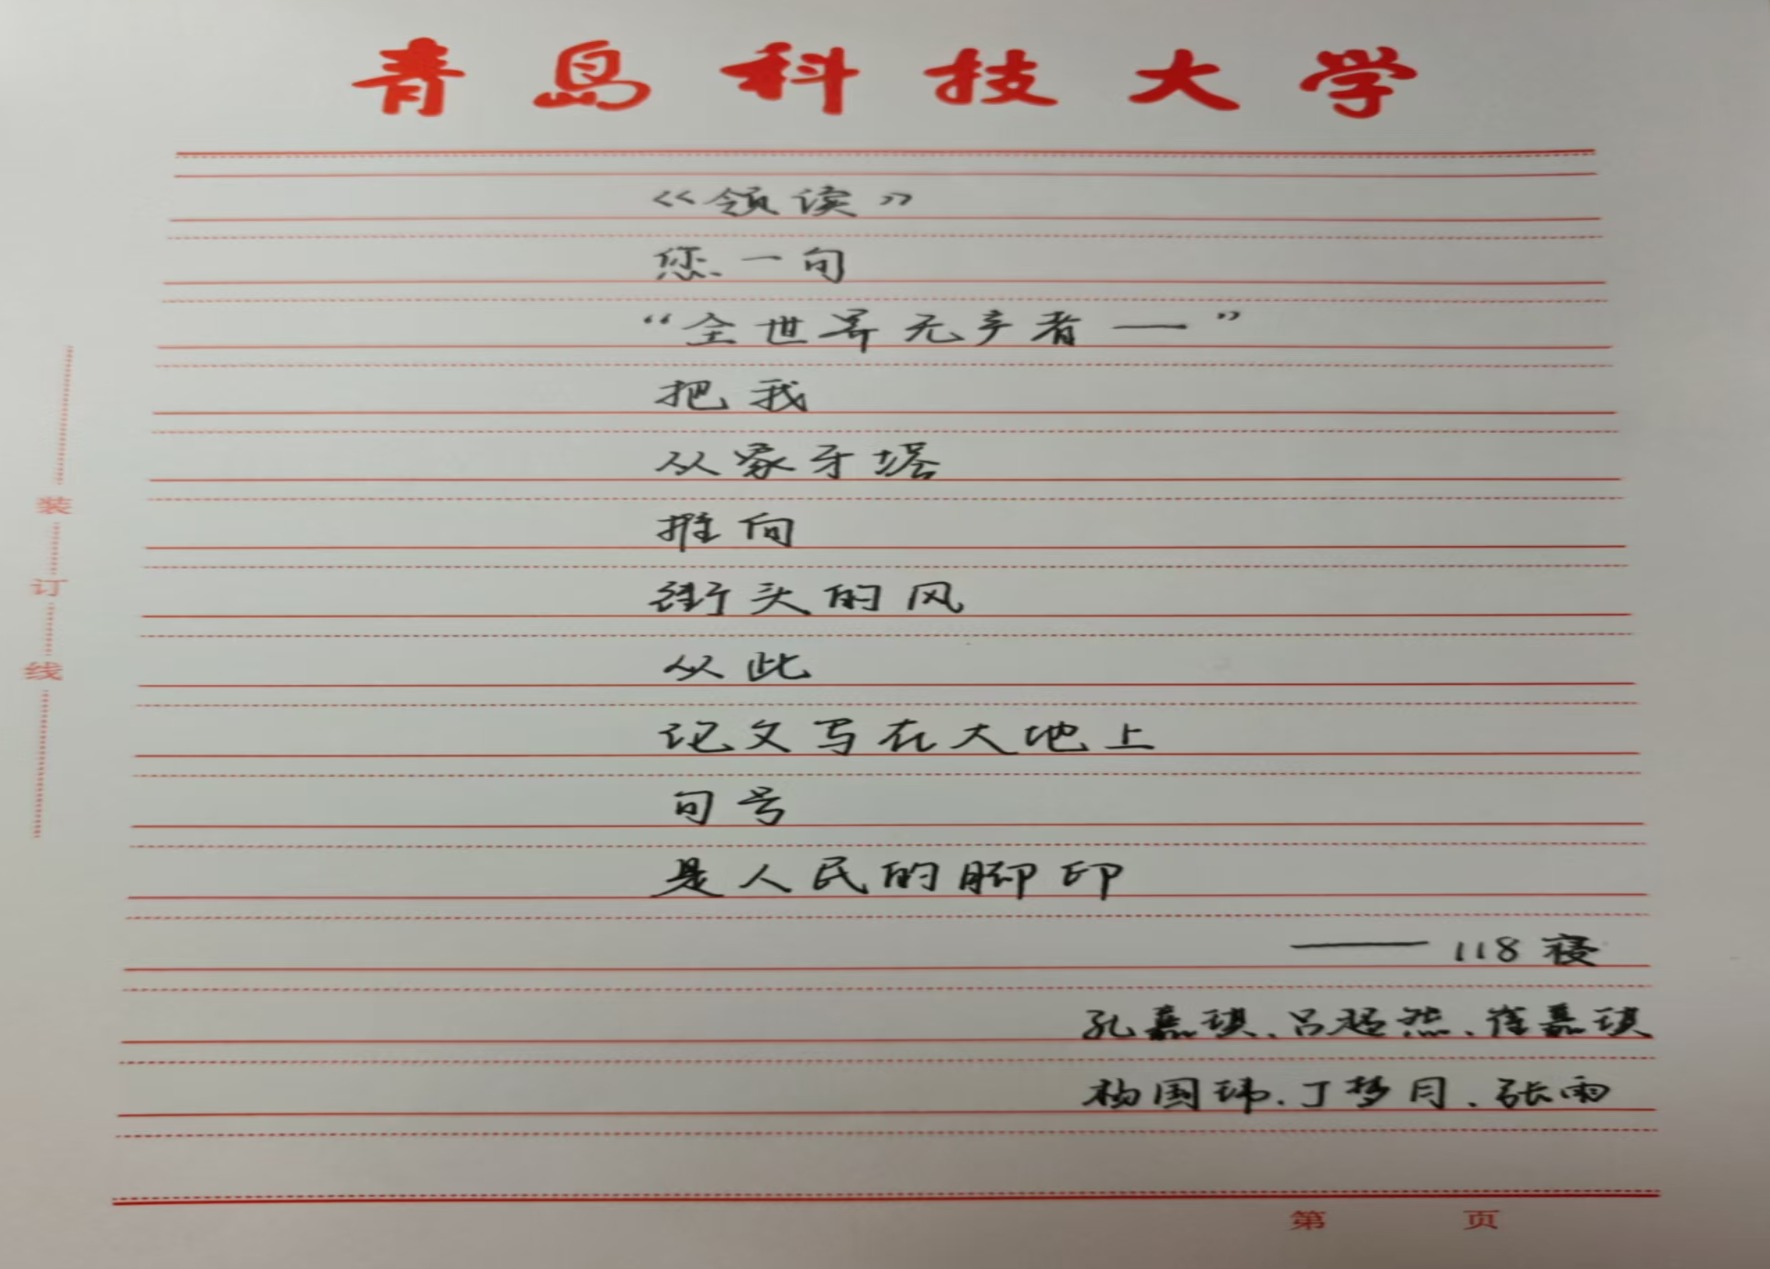 青岛科技大学
《领读》
您一句
“全世界无产者——”
把我
从象牙塔
推向
街头的风
从此
论文写在大地上
句号
是人民的脚印
——118寝
孔嘉琪、吕超然、崔嘉琪
杨国玮、丁梦月、张雨
装订线
第 页